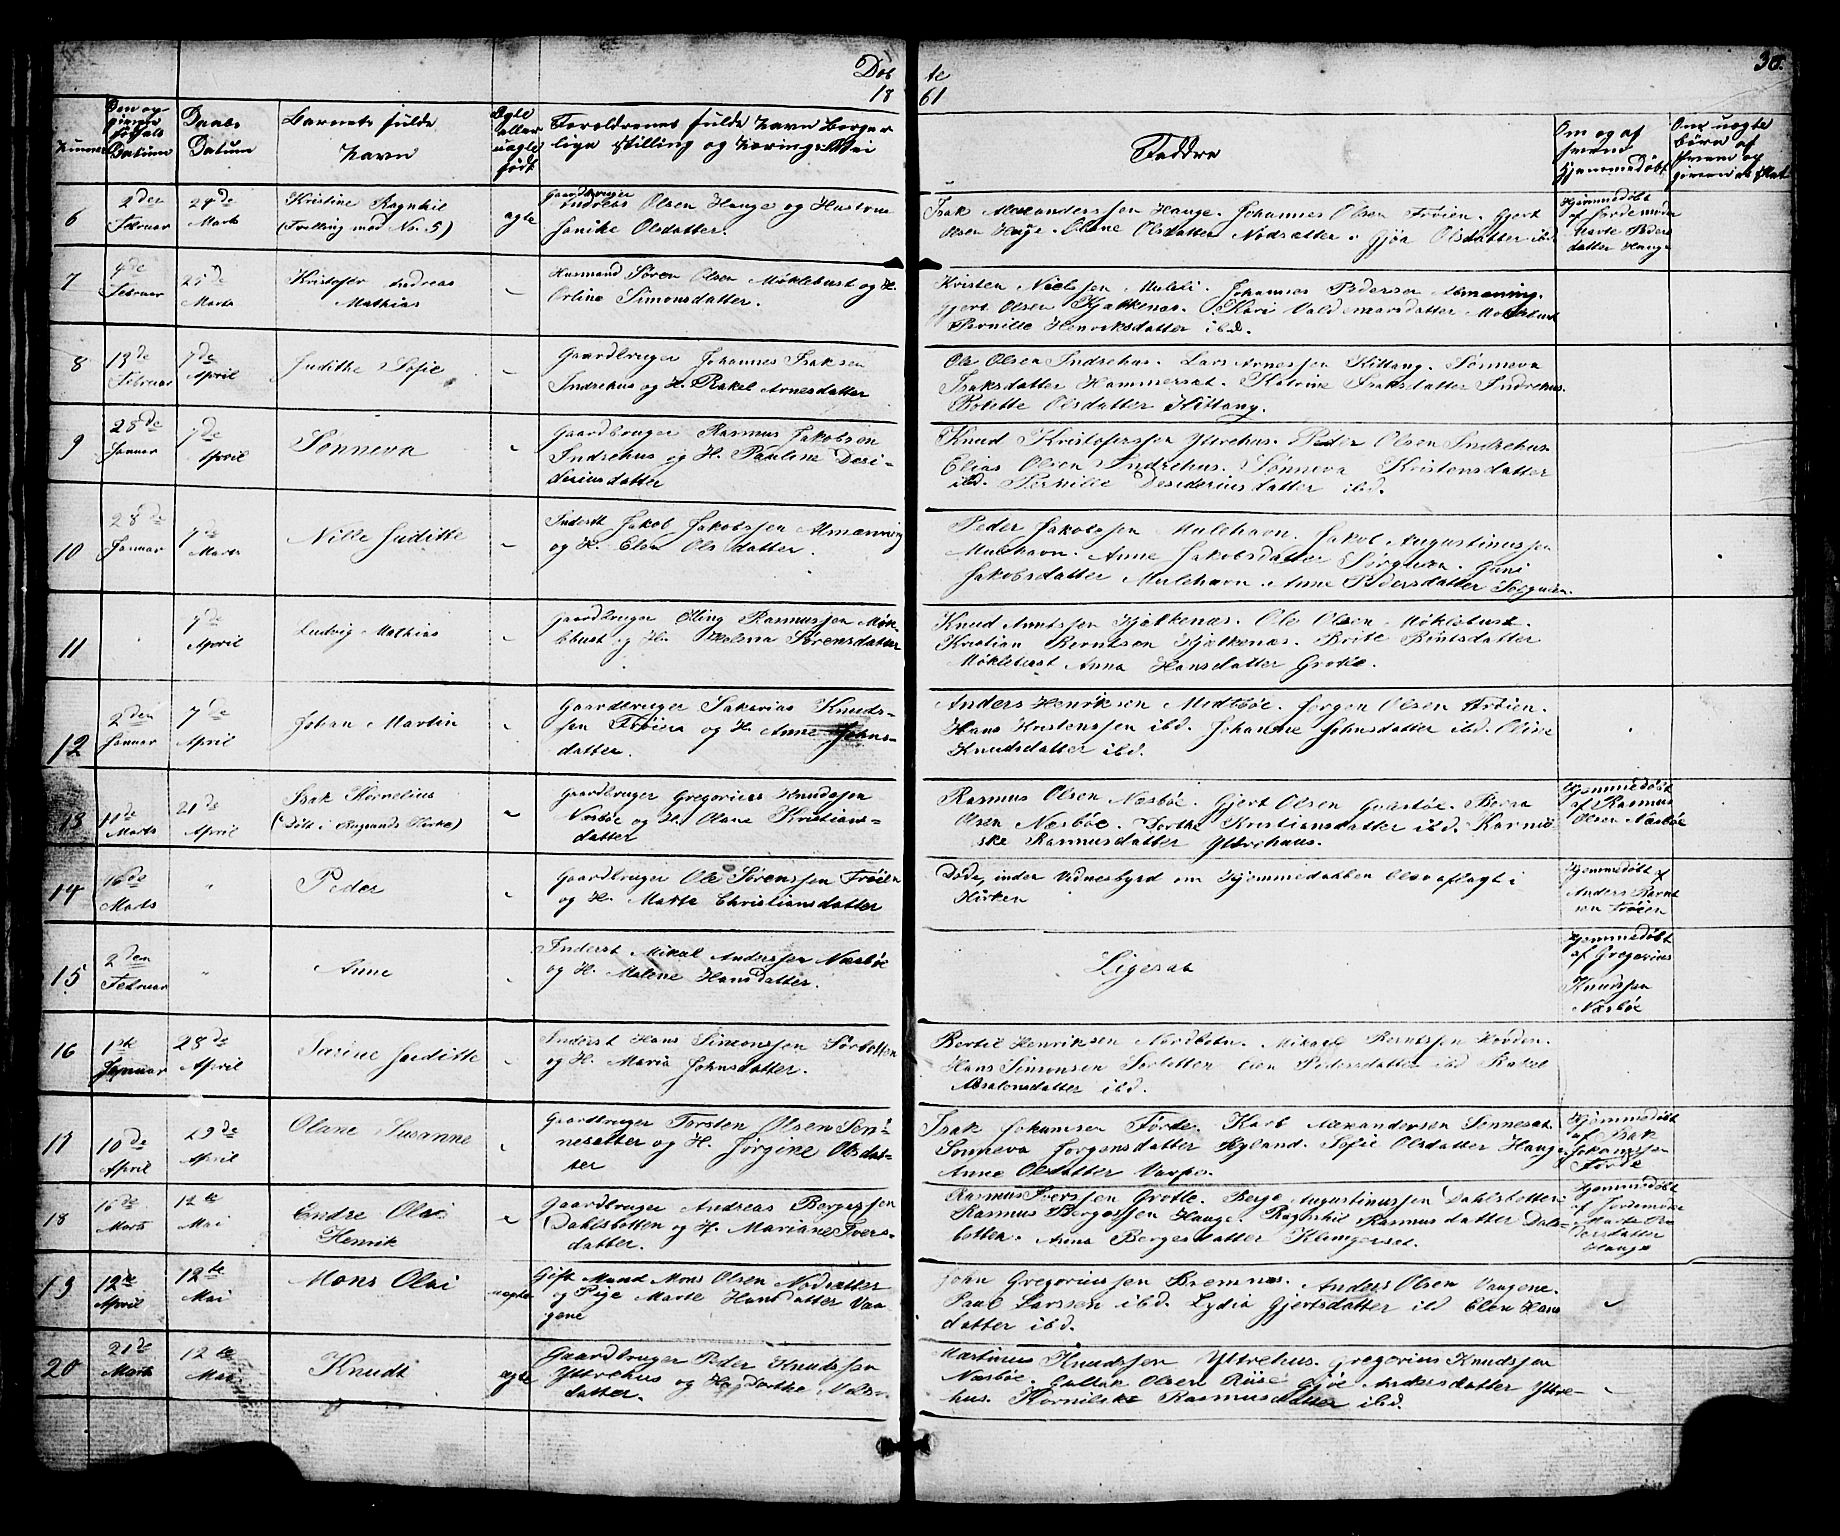 Døb
te
18
61
30.
Numer
Den opgivne Fødsels Datum
Daabs Datum
Barnets fulde Navn
Ægte eller uægte født
Forældrenes fulde Navn Borgerlige Stilling og Nærings Vei
Faddre
Om og af hvem Hjemmedøbt
Om uægte børn af hvem og
6
2den Februar
24de Marts
Kristine Ragnhil
(Tvelling med No. 5)
ægte
Gaardbruger
Andreas Olsen Hauge og Hustrue
Janike Olsdatter.
Isak Alexanderssen Hauge. Johannes Olsen Frøien. Gjert
Olsen Hauge. Oline Olsdatter Nødsætter. Gjøa Olsdatter ibd.
Hjemmedøbt
af Jordemoder
Marte Peders
datter Hauge
7
Februar
25de
Marts
Kristofer Andreas
Mathias
Husmand Søren Olsen Møklebust og H.
Orline Simonsdatter.
Kristen Nielssen Muleli. Johannes Pedersen Almenning.
Gjert Olsen Kjølkenæs. Kari Valdemarsdatter Møklebust
Pernille Henriksdatter ibd.
8
13de
Februar
7de
April
Judithe Sofie
Gaardbruger Johannes Isaksen
Indrehus og H. Rakel Arnesdatter
Ole Olsen Indrehus. Lars Arnessen Hittang. Sønneva
Isaksdatter Hammerset. Katrine Isaksdatter Indrehus.
Bolette Olsdatter Hittang.
9
28de
Januar
7de
April
Sønneva
Gaardbruger Rasmus Jakobsen
Indrehus og H. Pauline Desi-
deriusdatter
Knud Kristoferssen Yttrehus. Peder Olsen Indrehus.
Elias Olsen Indrehus. Sønneva Kristensdatter
ibd. Pernille Desideriusdatter ibd.
10
28de
Januar
7de
Marts
Nille Juditte
Inderst Jakob Jakobssen Almenning
og H. Elen Olsdatter.
Peder Jakobssen Mulehavn. Jakob Augustinussen
Mulehavn. Anne Jakobsdatter Sørgulen. Guni
Jakobsdatter Mulehavn. Anne Pedersdatter Sørgulen.
11
7de
April
Ludvig Mathias
Gaardbruger Elling Rasmussen Møk-
lebust og H. Malena Sørensdatter
Knud Arntssen Kjølkenæs. Ole Olsen Møklebust.
Kristian Berntsen Kjølkenæs. Brite Bentsdatter
Møklebust Anna Hansdatter Grotle.
12
2den
Januar
7de
April
Johan Martin
Gaardbruger Sakarias Knuds-
sen Frøien og H. Anne Johns-
datter.
Anders Henriksen Midtbøe. Jørgen Olsen Frøien.
Hans Kristenssen ibd. Johanne Johnsdatter ibd. Oline
Knudsdatter ibd.
13
11de
Marts
21de
April
Isak Kornelius
(Døbt i Bugsunds Kirke)
Gaardbruger Gregorius Knudssen
Nesbøe og H. Olane Kristians-
datter
Rasmus Olsen Næsbøe. Gjert Olsen Gulesbøe. Berra
Olsen Næsbøe. Dorthe Kristiansdatter ibd. Karnil-
ske Rasmusdatter Yttrehuus.
Hjemmedøbt
af Rasmus
Olsen Næsbøe
14
16de
Marts
"
Peder
Gaardbruger Ole Sørenssen Frøien
og H. Marte Christiansdatter
Døde, inden Vidnesbyrd om Hjemmedaaben blev aflagt i
Kirken
Hjemmedøbt af
Anders Bernt
sen Frøien
15
2den
Februar
"
Anne
Inderst Mikal Anderssen Næsbøe
og H. Malene Hansdatter.
Ligesaa
Hjemmedøbt
af Gregorius
Knudssen
Næsbøe
16
1ste
Januar
28de
April
Sarine Juditte
Inderst Hans Simonssen Sørbotten
og H. Maria Johnsdatter.
Bertil Henriksen Nordbotn. Mikael Berntssen
Hans Simonsen Sørbotten Elen Pedersdatter ibd Rakel
Absalonsdatter ibd.
17
10de
April
29de
April
Olane Susanne
Gaardbruger Torsten Olsen Søn-
nesætter og H. Jørgine Olsdat-
ter
Isak Johansen Førde. Karl Alexandersen Sønneset
Sønneva Jorgensdatter Hyland. Sofie Olsdatter Hauge.
Anne Olsdatter Varpe.
Hjemmedøbt
af Isak
Johanssen
Førde
18
16de
Marts
12te
Mai
Endre Olai
Henrik
Gaardbruger Andreas Bergessen
Dahlsbotten og H. Mariane Ivers-
datter.
Rasmus Iverssen Grotle. Berge Augustinussen Dahlsbotten
Rasmus Bergessen Hauge. Ragnhil Rasmusdatter Dals-
botten. Anna Bergesdatter Klungerset.
Hjemmedøbt
af Jordemoder
Marte Pe
dersdatter
Hauge
19
12te
April
12te
Mai
Mons Olai
uægte
Gift Mand Mons Olsen Nødsætter
og Pige Marte Hansdatter Vaa
gene
John Gregoriussen Bremnes. Anders Olsen Vaagene.
Paul Larssen ibd. Lydia Gjertsdatter ibd Elen Hans
datter ibd.
20
21de
Marts
12te
Mai
Knudt
ægte
Gaardbruger Peder Knudssen
Yttrehus og H. Dorthe Nils-
datter.
Martinus Knudssen Yttrehus. Gregorius Knudssen
Næsbøe. Gultak Olsen Risø. Gjøe Andersdatter Yttre-
hus. Kornilske Rasmusdatter ibd.